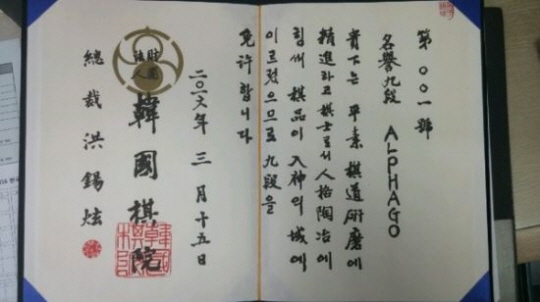 第 〇〇一號
名譽九段 ALPHAGO
貴下는 平素 棋道硏磨에
精進하고 棋士로서 人格陶冶에
힘써 棋品이 入神의 域에
이르렀으므로 九段을
免許합니다
二〇一六年 三月十五日
財團
法人
韓國棋院
總裁 洪錫炫